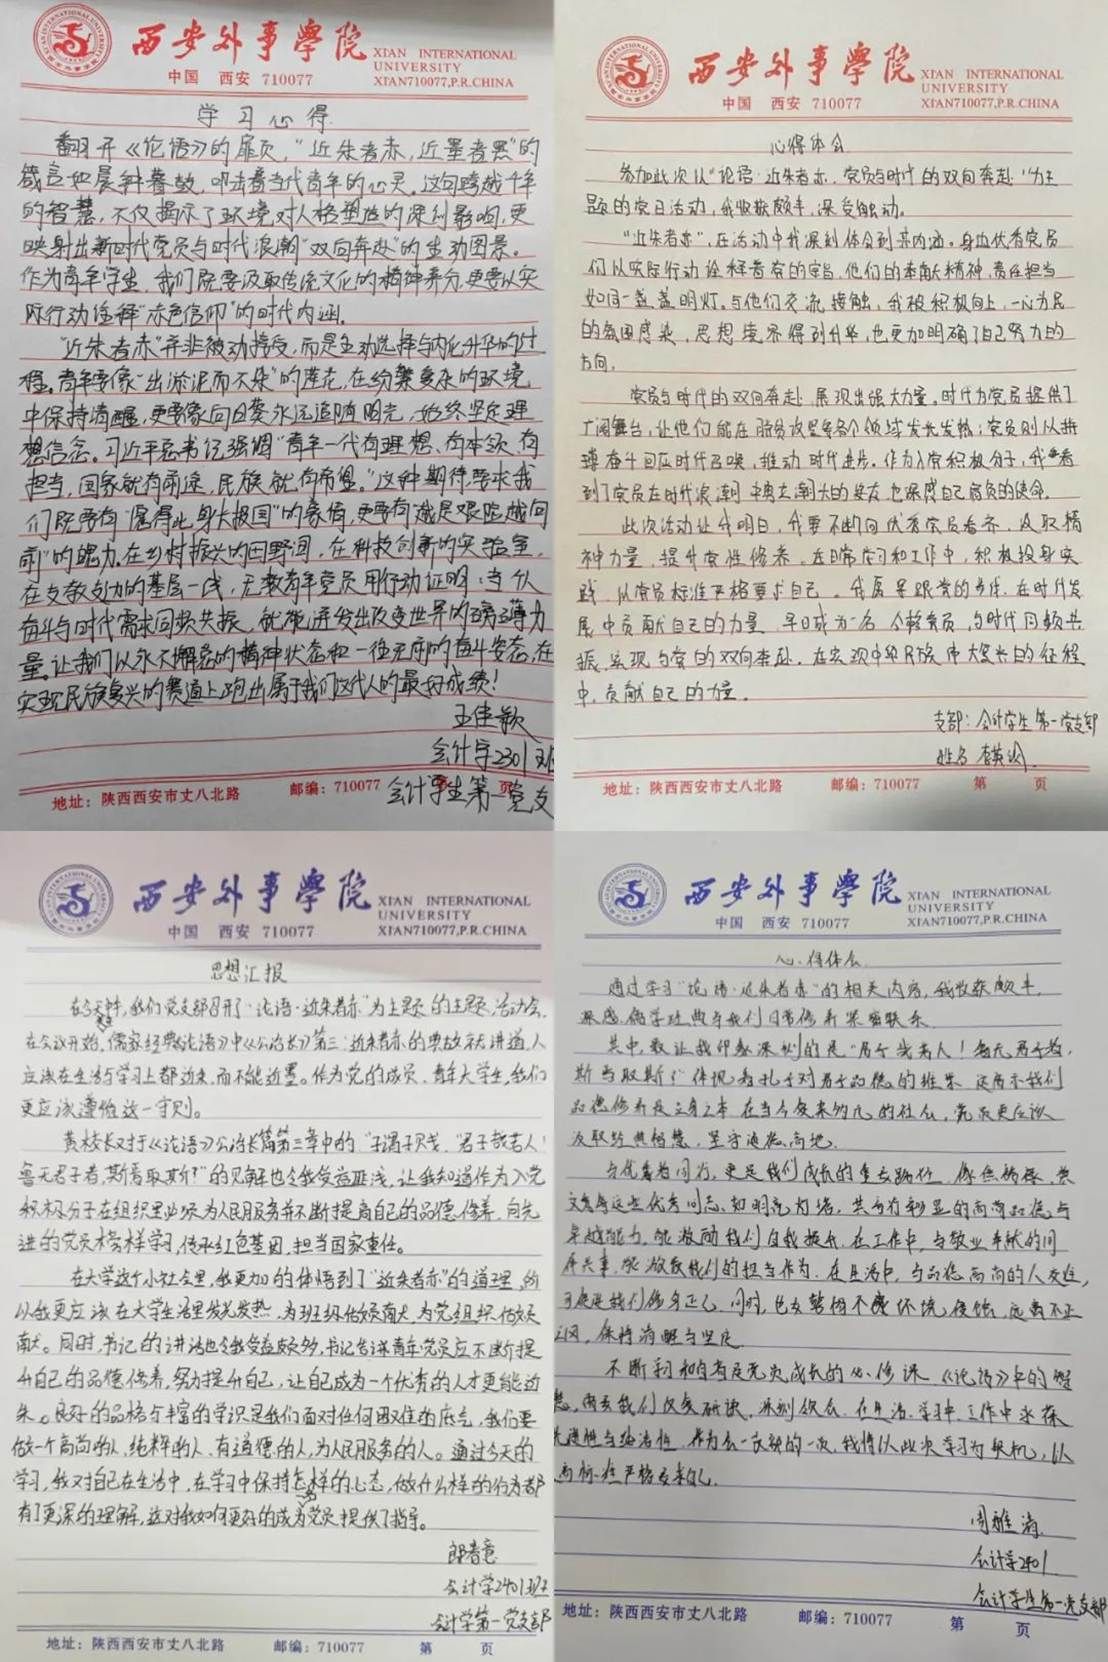 西安外事學院
XIAN INTERNATIONAL
UNIVERSITY
中国 西安 710077
XIAN710077,P.R.CHINA
学习心得
翻开《论语》的扉页，“近朱者赤，近墨者黑”的
箴言如晨钟暮鼓，叩击着当代青年的心灵。这句跨越千年
的智慧，不仅揭示了环境对人格塑造的深刻影响，更
映射出新时代党员与时代浪潮“双向奔赴”的生动图景。
作为青年学生，我们既要汲取传统文化的精神养分，更要以实
际行动诠释“赤色信仰”的时代内涵。
“近朱者赤”并非被动接受，而是主动选择与内化升华的过
程。青年要像“出淤泥而不染”的莲花，在纷繁复杂的环境
中保持清醒，更要像向日葵永远追随阳光，始终坚定理
想信念。习近平总书记强调“青年一代有理想、有本领、有
担当，国家就有前途，民族就有希望。”这种期待要求我
们既要有“愿得此身长报国”的豪情，更要有“越是艰险越向
前”的魄力。在乡村振兴的田野间，在科技创新的实验室，
在支教支边的基层一线，无数青年党员用行动证明：当个人
奋斗与时代需求同频共振，就能迸发出改变世界的磅礴力
量。让我们以永不懈怠的精神状态和一往无前的奋斗姿态，在
实现民族复兴的赛道上跑出属于我们这代人的最好成绩！
王佳歆
会计学2301班
会计学生第一党支
地址：陕西西安市丈八北路 邮编：710077 页
西安外事學院
XIAN INTERNATIONAL
UNIVERSITY
中国 西安 710077
XIAN710077,P.R.CHINA
心得体会
参加此次以“论语·近朱者赤，党员与时代的双向奔赴”为主
题的党日活动，我收获颇丰，深受触动。
“近朱者赤”，在活动中我深刻体会到其内涵。身边优秀党员
们以实际行动诠释着党的宗旨，他们的奉献精神、责任担当
如同一盏盏明灯。与他们交流接触，我被积极向上、一心为民
的氛围感染，思想境界得到升华，也更加明确了自己努力的
方向。
党员与时代的双向奔赴，展现出强大力量。时代为党员提供了
广阔舞台，让他们能在脱贫攻坚等各个领域发光发热；党员则以拼
搏奋斗回应时代召唤，推动时代进步。作为入党积极分子，我看
到了党员在时代浪潮中勇立潮头的姿态，也深感自己肩负的使命。
此次活动让我明白，我要不断向优秀党员看齐，汲取精
神力量，提升党性修养。在日常学习和工作中，积极投身实
践，以党员标准严格要求自己。我愿紧跟党的步伐，在时代发
展中贡献自己的力量，早日成为一名合格党员，与时代同频共
振，实现与党的双向奔赴，在实现中华民族伟大复兴的征程
中，贡献自己的力量。
支部：会计学生第一党支部
姓名
地址：陕西西安市丈八北路 邮编：710077 第 页
西安外事學院
XIAN INTERNATIONAL
UNIVERSITY
中国 西安 710077
XIAN710077,P.R.CHINA
思想汇报
在今天中午，我们党支部召开了“论语·近朱者赤”为主题的主题活动会，
在会议开始，儒家经典《论语》中《公治长》第三：近朱者赤的典故来讲道，人
应该在生活与学习上都近朱，而不能近墨。作为党的成员，青年大学生，我们
更应该遵循这一守则。
黄校长又对于《论语》公治长篇第三章中的“子谓子贱，“君子哉若人！
鲁无君子者，斯焉取斯？”的见解也令我受益匪浅，让我知道作为入党
积极分子在组织里必须为人民服务并不断提高自己的品德修养，向先
进的党员榜样学习，传承红色基因，担当国家重任。
在大学这个小社会里，我更加的体悟到了“近朱者赤”的道理，所
以我更应该在大学生活里发光发热，为班级做贡献，为党组织做贡
献。同时，书记的讲话也令我受益颇多，书记告诫青年党员应不断提
升自己的品德修养，努力提升自己，让自己成为一个优秀的人才更能近
朱。良好的品格与丰富的学识是我们面对任何困难的底气，我们要
做一个高尚的人，纯粹的人，有道德的人，为人民服务的人。通过今天的
学习，我对自己在生活中，在学习中保持怎样的心态，做什么样的行为都
有了更深的理解，这对我如何更好的成为党员提供了指导。
郎睿意
会计学2401班
会计学第一党支部
地址：陕西西安市丈八北路 邮编：710077 第 页
西安外事學院
XIAN INTERNATIONAL
UNIVERSITY
中国 西安 710077
XIAN710077,P.R.CHINA
心得体会
通过学习“论语·近朱者赤”的相关内容，我收获颇丰，
深感儒学经典与我们日常修养紧密联系
其中，最让我印象深刻的是“君子哉若人！鲁无君子者，
斯焉取斯？”体现着孔子对君子品德的推崇，这启示我们
品德修养是立身之本，在当今复杂的社会，党员更应该
汲取经典智慧，坚守道德高地。
与优秀者同行，更是我们成长的重要路径。像
这些优秀同志，如明亮灯塔，其彰显的高尚品德与
卓越能力，能激励我们自我提升。在工作中，与敬业奉献的同
事共事，能激发我们的担当作为，在生活中，与品德高尚的人交往，
可促进我们修身正己，同时，也要警惕不良环境侵蚀，远离不正
之风，保持清醒与坚定
不断学习和自省是党员成长的必修课，《论语》中的智
慧，需要我们反复研读，深刻领会，在生活、学习中、工作中永葆
先进性与纯洁性，作为会计党员的一员，我将以此次学习为契机，以
高标准严格要求自己。
周雅涛
会计学2401
会计学生第一党支部
地址：陕西西安市丈八北路 邮编：710077 第 页